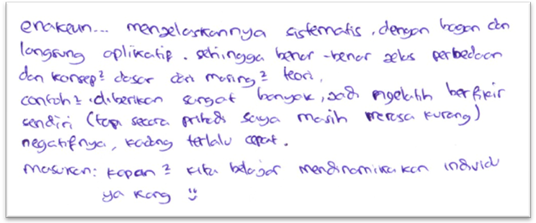 enakeun... menjelaskannya sistematis, dengan bagan dan
langsung aplikatif. sehingga benar-benar jelas perbedaan
dan konsep² dasar dari masing² teori.
contoh² diberikan sangat banyak, jadi ngelatih berfikir
sendiri (tapi secara pribadi saya masih merasa kurang)
negatifnya, kadang terlalu cepat.
masukan: kapan² kita belajar mendinamikakan individu
ya kang